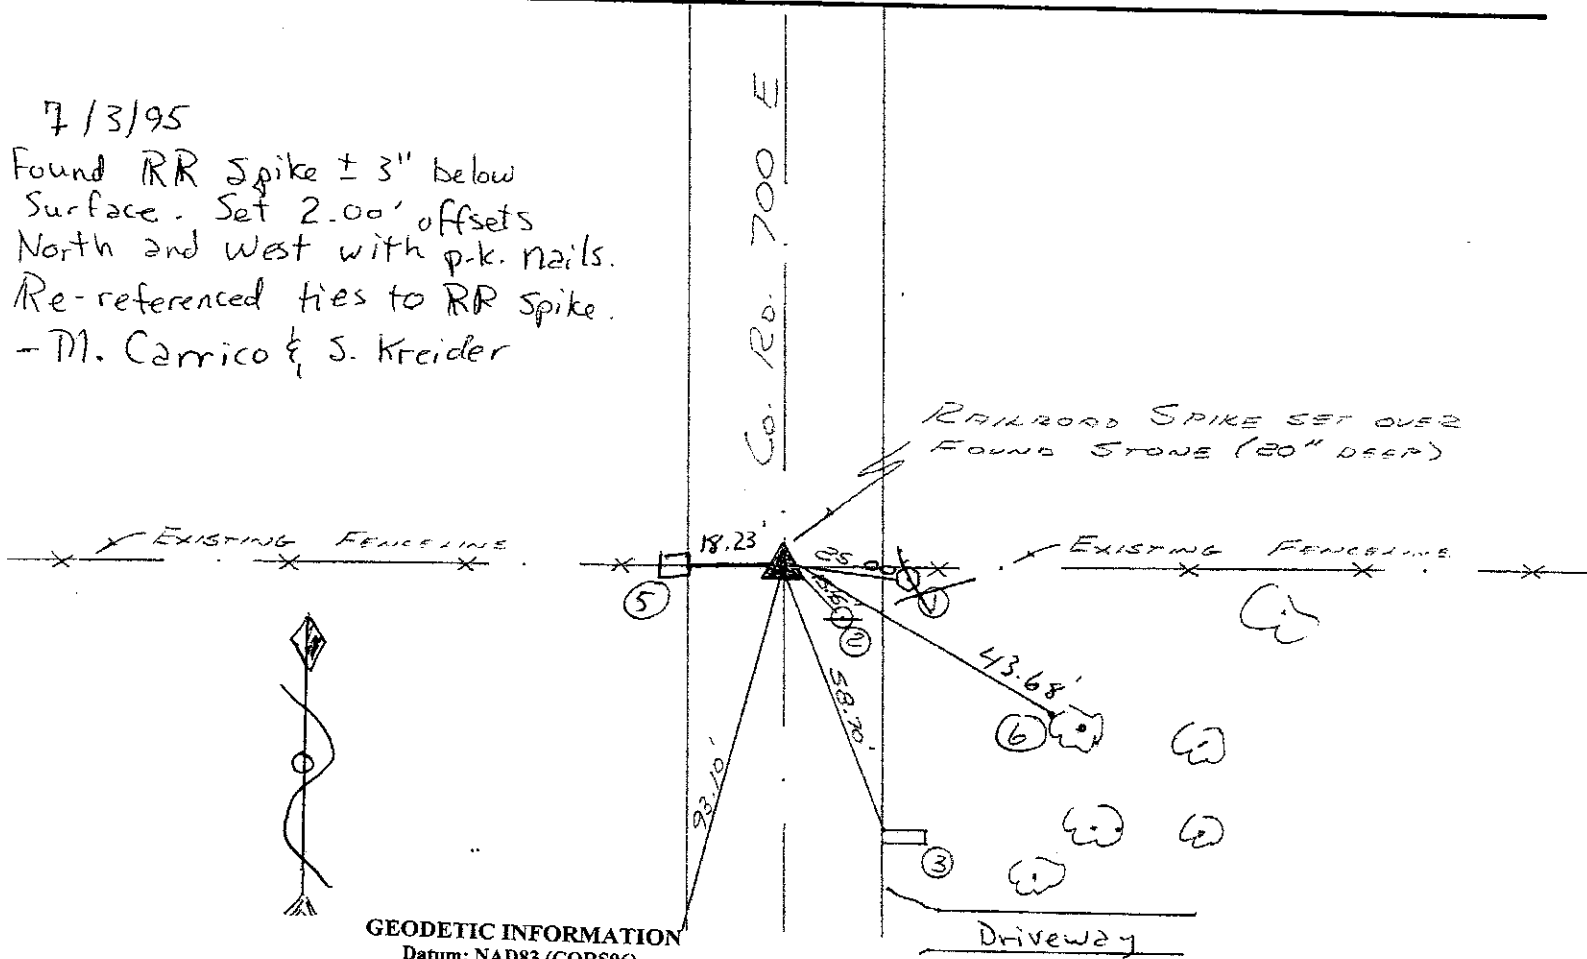 7/3/95
Found RR Spike ± 3" below
Surface. Set 2.00' offsets
North and West with p.k. nails.
Re-referenced ties to RR Spike.
- M. Carrico & S. Kreider
Co. Rd. 700 E
RAILROAD SPIKE SET OVER
FOUND STONE (20" DEEP)
EXISTING FENCELINE
18.23'
25.00'
EXISTING FENCELINE
5
1
2
43.68'
58.70'
6
93.10'
3
GEODETIC INFORMATION
Datum: NAD83 (CORS96)
Driveway